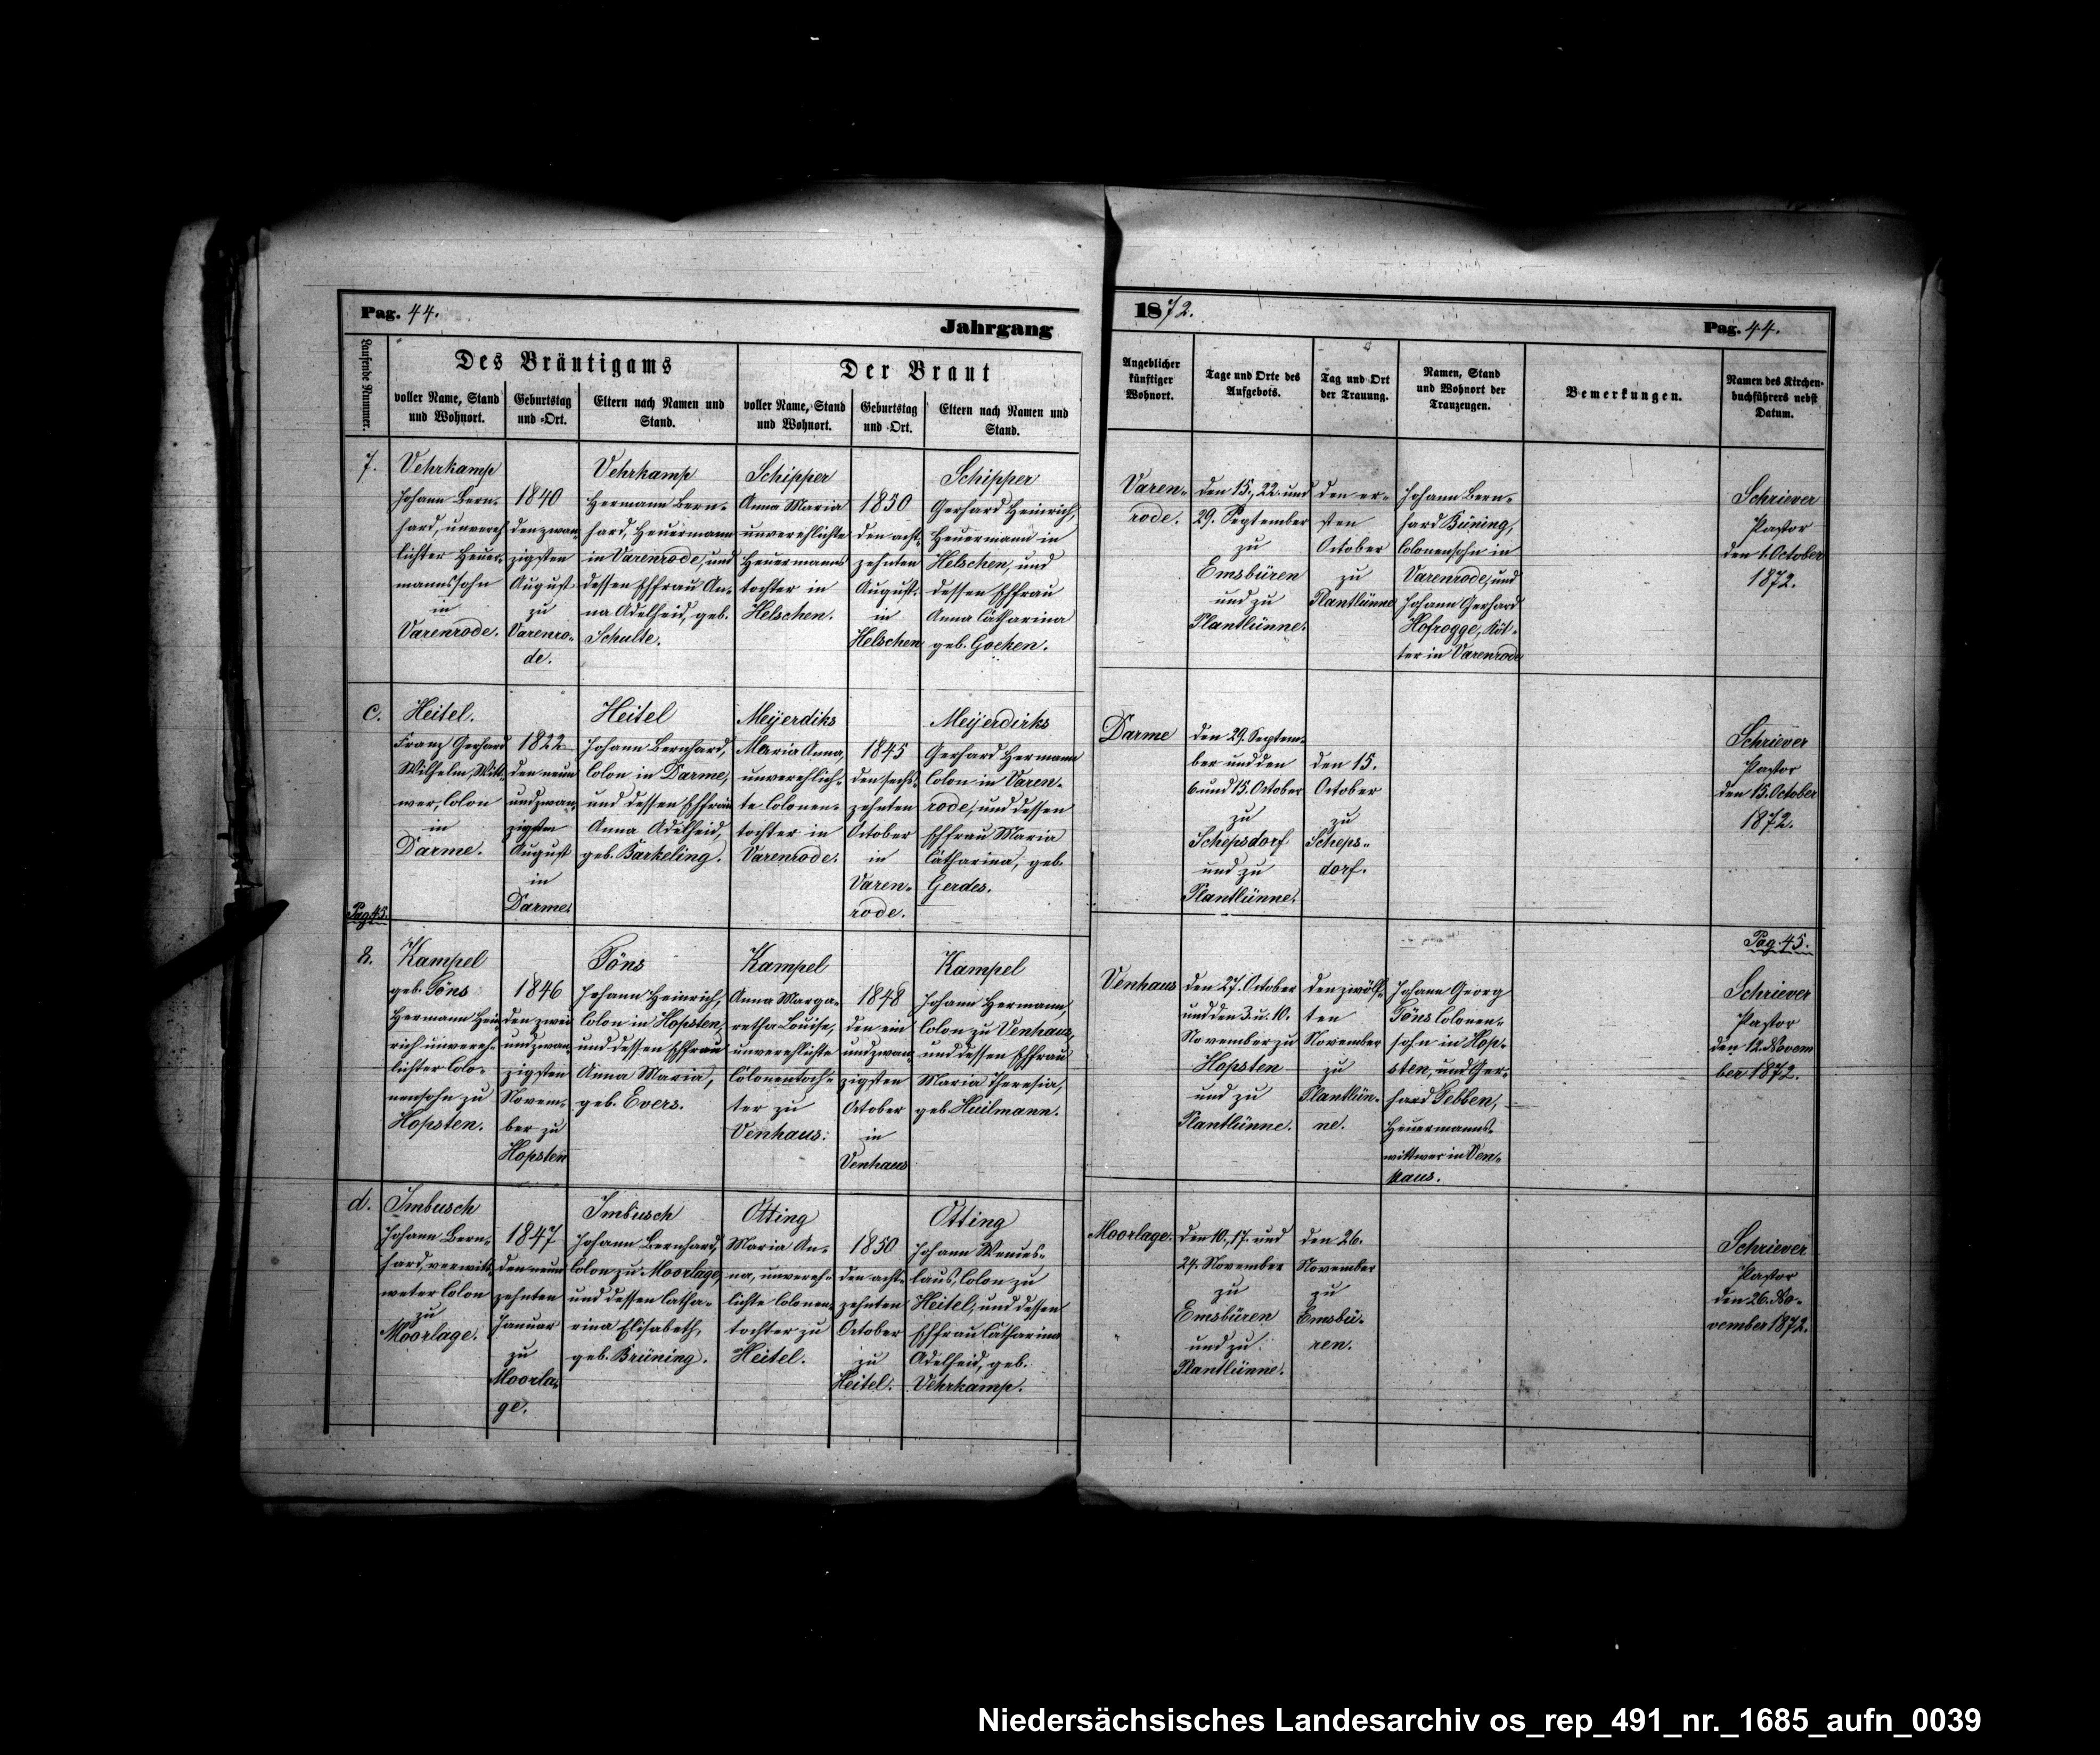 Pag. 44.
Jahrgang
1872.
Pag. 44.
Laufende Nummer.
Des Bräutigams
voller Name, Stand
und Wohnort.
Geburtstag
und -Ort.
Eltern nach Namen und
Stand.
Der Braut
voller Name, Stand
und Wohnort.
Geburtstag
und -Ort.
Eltern nach Namen und
Stand.
Angeblicher
künftiger
Wohnort.
Tage und Orte des
Aufgebots.
Tag und Ort
der Trauung.
Namen, Stand
und Wohnort der
Trauzeugen.
Bemerkungen.
Namen des Kirchen-
buchführers nebst
Datum.
7.
Vehrkamp
Johann Bern-
hard, unvereh
lichter Heuer-
mannssohn
in
Varenrode.
1840
den zwan-
zigsten
August
zu
Varenro-
de.
Vehrkamp
Hermann Bern-
hard, Heuermann
in Varenrode, und
dessen Ehfrau An-
na Adelheid, geb.
Schulte.
Schipper
Anna Maria
unverehlichte
Heuermanns
tochter in
Helschen.
1850
den acht-
zehnten
August
in
Helschen
Schipper
Gerhard Heinrich,
Heuermann in
Helschen, und
dessen Ehfrau
Anna Catharina
geb. Gochen.
Varen-
rode.
den 15., 22. und
29. September
zu
Emsbüren
und zu
Plantlünne.
den er-
sten
October
zu
Plantlünne
Johann Bern-
hard Büning,
Colonensohn in
Varenrode, und
Johann Gerhard
Hofrogge, Köt-
ter in Varenrode
Schriever
Pastor
den 1. October
1872.
c.
Heitel.
Franz Gerhard
Wilhelm, Witt-
wer, Colon
in
Darme.
1822
den neun
und zwan-
zigsten
August
in
Darme.
Heitel
Johann Bernhard,
Colon in Darme,
und dessen Ehfrau
Anna Adelheid,
geb. Barkeling.
Meyerdiks
Maria Anna,
unverehlich-
te Colonen-
tochter in
Varenrode.
1845
den sechs-
zehnten
October
in
Varen-
rode.
Meyerdirks
Gerhard Hermann
Colon in Varen-
rode, und dessen
Ehfrau Maria
Catharina, geb.
Gerdes.
Darme
den 29. Septem-
ber und den
6. und 15. October
zu
Schepsdorf
und zu
Plantlünne.
den 15.
October
zu
Scheps-
dorf.
Schriever
Pastor
den 15. October
1872.
Pag. 45.
8.
Kampel
geb. Töns
Hermann Hein
rich unvereh-
lichter Colo-
nensohn zu
Hopsten.
1846
den zwei
und zwan-
zigsten
Novem-
ber zu
Hopsten
Töns
Johann Heinrich,
Colon in Hopsten,
und dessen Ehfrau
Anna Maria,
geb. Evers.
Kampel
Anna Marga-
retha Louise,
unverehlichte
Colonentoch-
ter zu
Venhaus.
1848
den ein
und zwan-
zigsten
October
in
Venhaus
Kampel
Johann Hermann,
Colon zu Venhaus,
und dessen Ehfrau
Maria Theresia,
geb. Huilmann.
Venhaus
den 27. October
und den 3. u. 10.
November zu
Hopsten
und zu
Plantlünne.
den zwölf-
ten
November
zu
Plantlün-
ne.
Johann Georg
Töns Colonen-
sohn in Hop-
sten, und Ger-
hard Tebben,
Heuermanns-
wittwer in Ven-
haus.
Pag. 45.
Schriever
Pastor
den 12. Novem
ber 1872.
d.
Imbusch
Johann Bern-
hard, verwitt-
weter Colon
zu
Moorlage.
1847
den neun
zehnten
Januar
zu
Moorla-
ge.
Imbusch
Johann Bernhard,
Colon zu Moorlage,
und dessen Catha-
rina Elisabeth,
geb. Brüning.
Otting
Maria An-
na, unvereh-
lichte Colonen-
tochter zu
Heitel.
1850
den acht-
zehnten
October
zu
Heitel.
Otting
Johann Wences-
laus, Colon zu
Heitel, und dessen
Ehfrau Catharina
Adelheid, geb.
Vehrkamp.
Moorlage.
den 10., 17. und
24. November
zu
Emsbüren
und zu
Plantlünne.
den 26.
November
zu
Emsbü-
ren.
Schriever
Pastor
den 26. No-
vember 1872.
Niedersächsisches Landesarchiv os_rep_491_nr._1685_aufn_0039